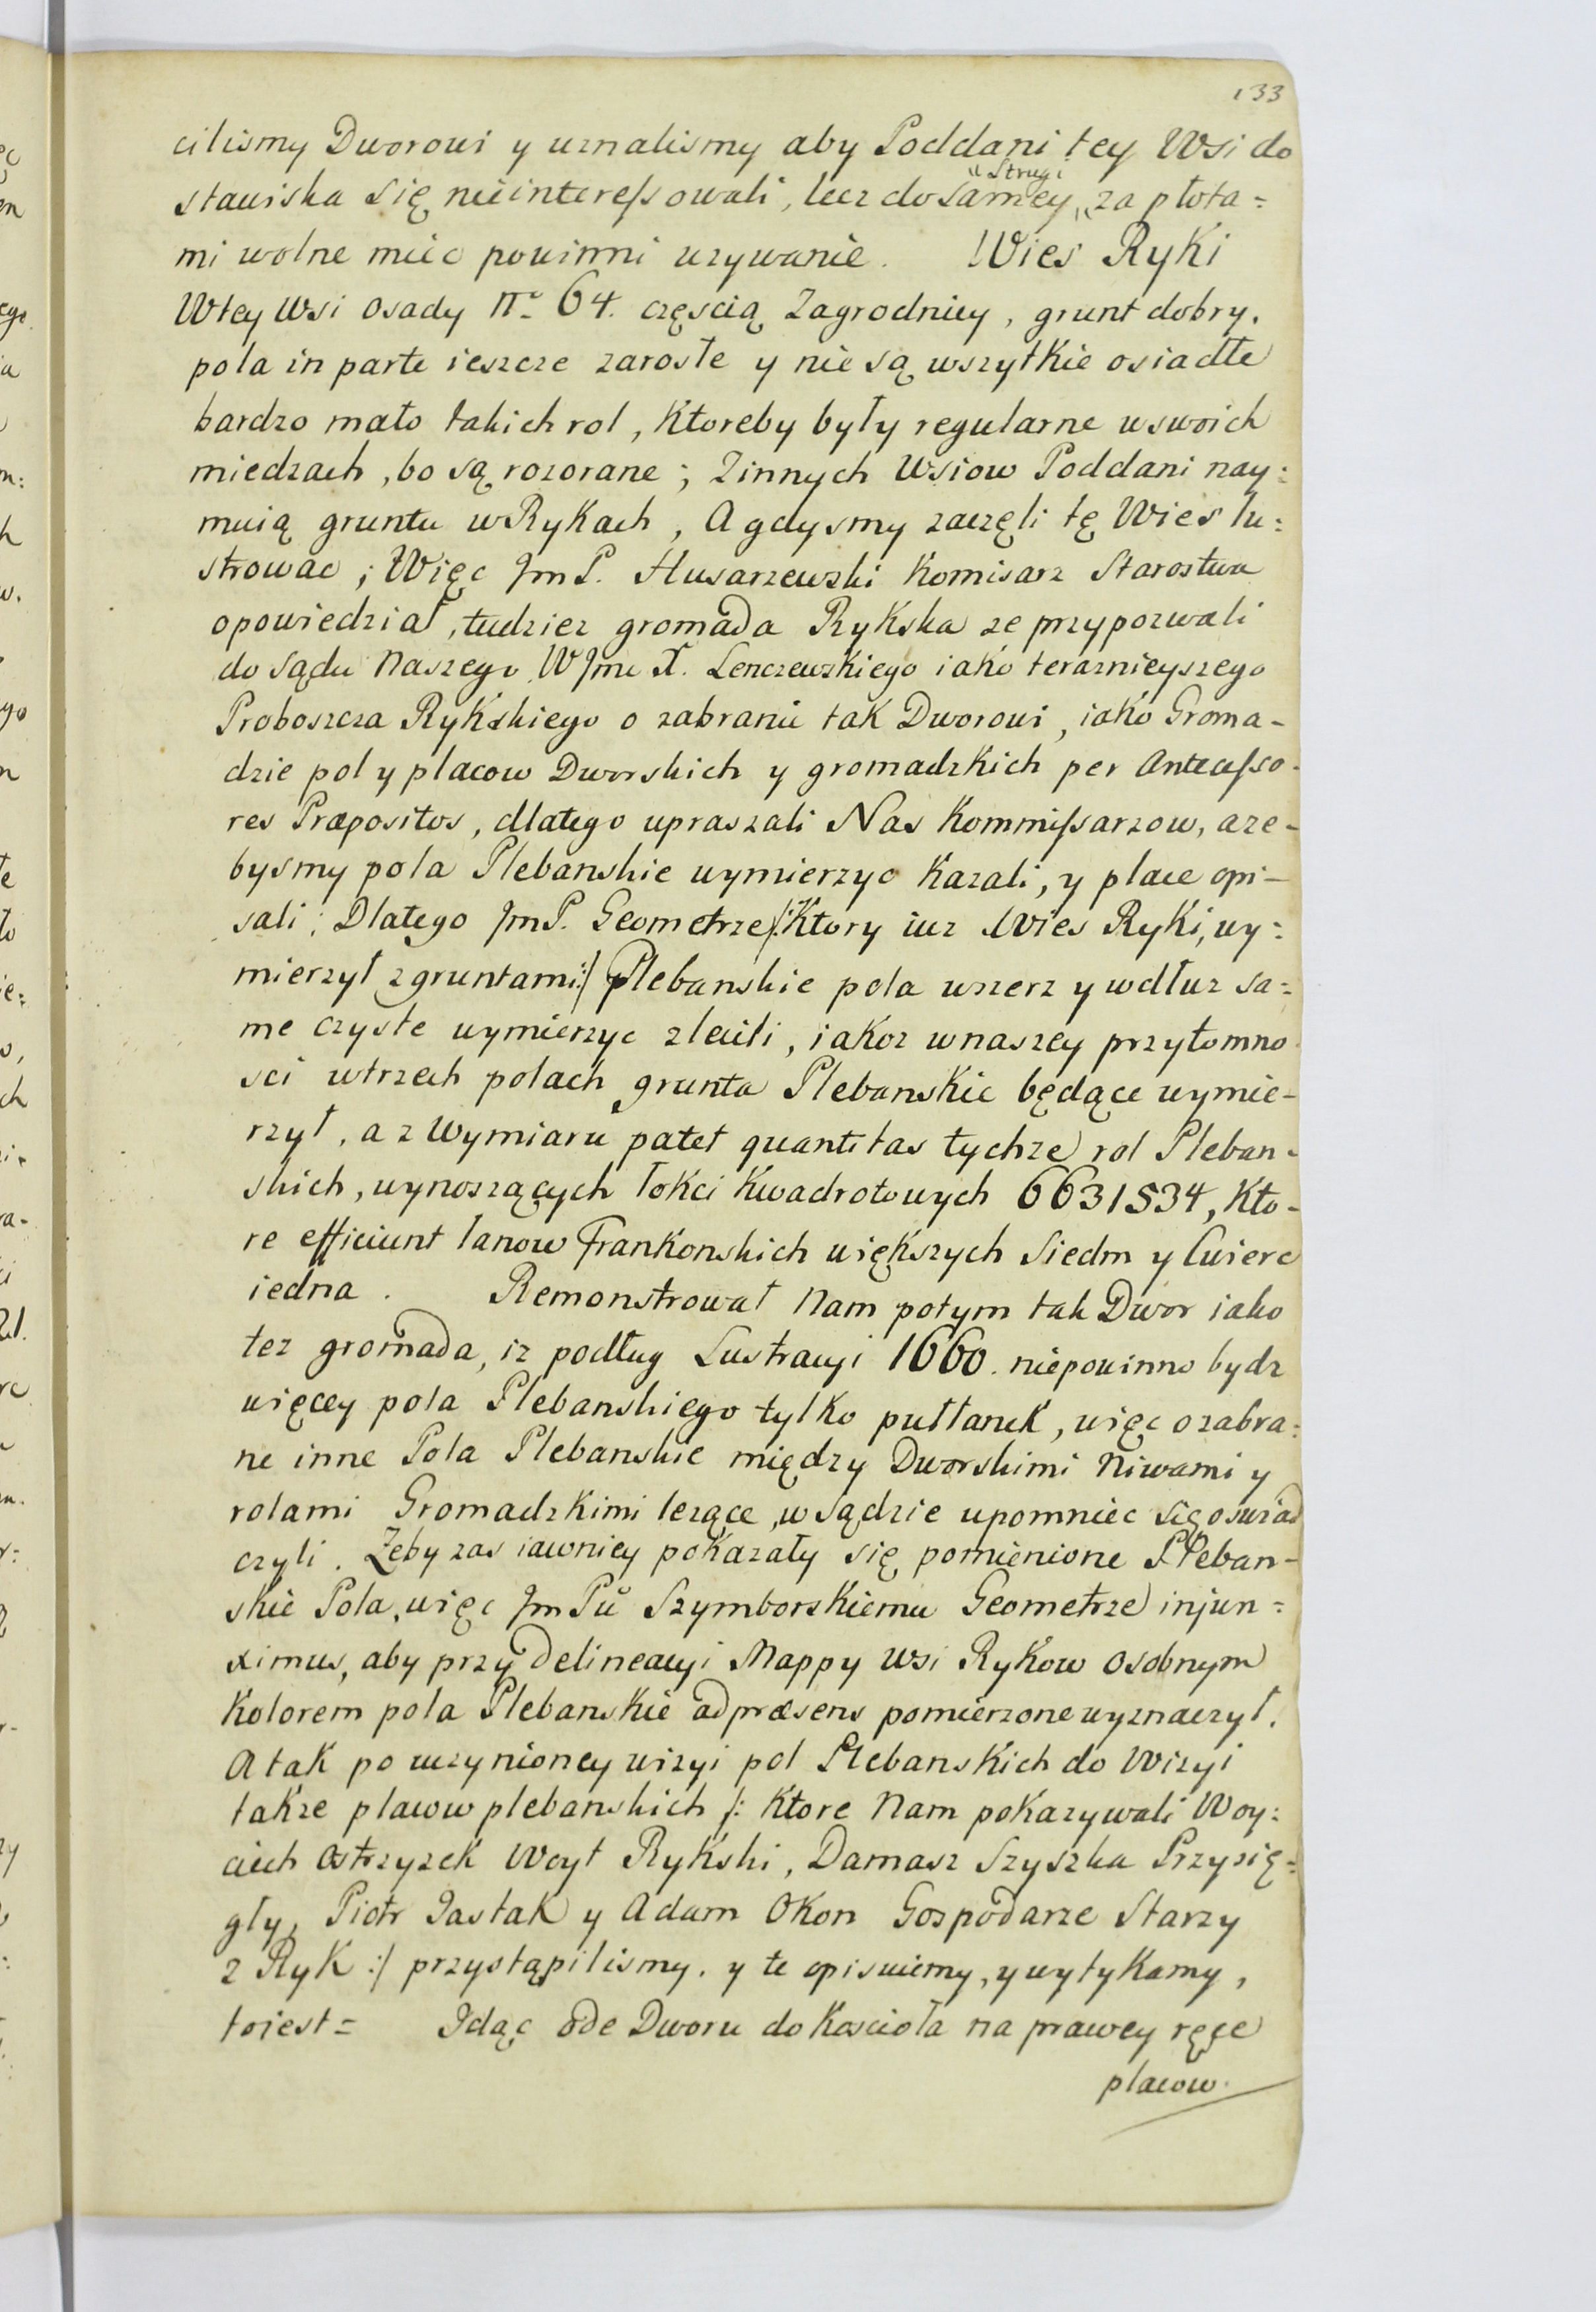 133
cilismy Dworowi y uznalismy aby Poddani tey Wsi do
stawiska się nieinteressowali, lecz do samey "Strugi" za płota=
mi wolne miec powinni uzywanie. Wies Ryki
W tey Wsi osady Nº 64. częscią Zagrodnicy, grunt dobry.
pola in parte ieszcze zarosłe y nie są wszytkie osiadłe
bardzo mało takich rol, ktoreby były regularne w swoich
miedzach, bo są rozorane; Z innych Wsiow Poddani nay:
muią gruntu w Rykach, A gdysmy zaczęli tę Wies lu:
strowac; Więc Jm P. Husarzewski Komisarz Starostwa
opowiedział, tudziez gromada Rykska ze przypozwali
do sądu Naszego W Jmc X. Lenczewskiego iako teraznieyszego
Proboszcza Rykskiego o zabranie tak Dworowi, iako Groma-
dzie pol y placow Dworskich y gromadzkich per Antecesso-
res Præpositos, dlatego upraszali Nas Kommissarzow, aze-
bysmy pola Plebanskie wymierzyc kazali, y place opi-
sali; Dlatego Jm P. Geometrze /: Ktory iuz Wies Ryki, wy:
mierzył z gruntami :/ Plebanskie pola wszerz y wdłuz sa=
me czyste wymierzyc zlecili, iakoz w naszey przytomno
sci w trzech polach grunta Plebanskie będące wymie-
rzył, a z Wymiaru patet quantitas tychze rol Pleban-
skich, wynoszących łokci kwadrotowych 6631534, kto-
re efficiunt łanow Frankonskich większych Siedm y Cwierc
iedna. Remonstrował Nam potym tak Dwor iako
tez gromada, iz podług Lustracyi 1660. niepowinno bydz
więcey pola Plebanskiego tylko pułłanek, więc o zabra:
ne inne Pola Plebanskie między Dworskimi Niwami y
rolami Gromadzkimi lezące, w sądzie upomniec się oswiad
czyli. Zeby zas iawniey pokazały się pomienione Pleban-
skie Pola, więc Jm Pu Szymborskiemu Geometrze injun=
ximus, aby przy Delineacyi Mappy Wsi Rykow osobnym
Kolorem pola Plebanskie ad præsens pomierzone wyznaczył.
A tak po uczynioney wizyi pol Plebanskich do Wizyi
takze placow plebanskich /: Ktore Nam pokazywali Woy:
ciech Ostrzyzek Woyt Rykski, Damasz Szyszka Przysię=
gły, Piotr Jastak y Adam Okon Gospodarze Starzy
z Ryk :/ przystąpilismy. y te opisuiemy, y wytykamy,
toiest= Idąc ode Dworu do Koscioła na prawey ręce
placow.